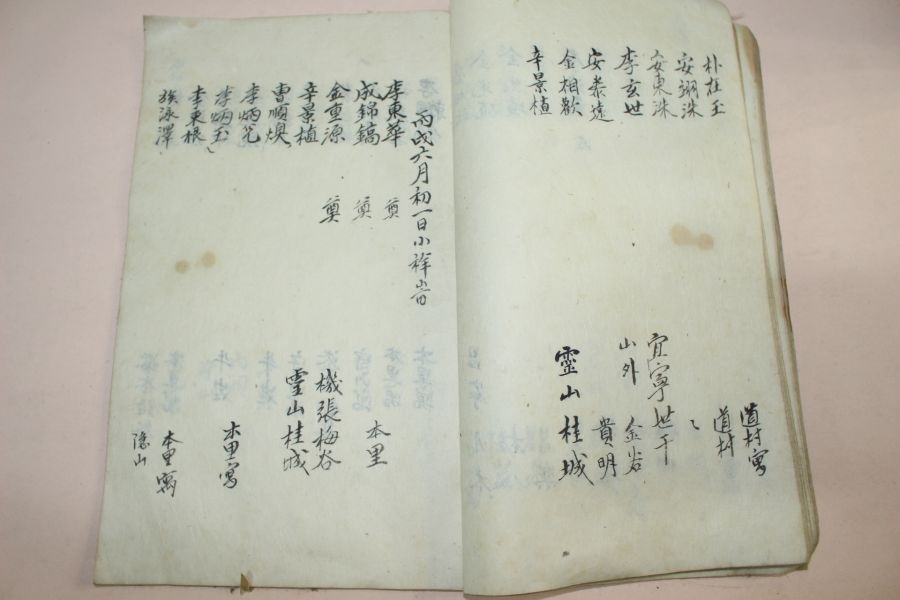 朴在玉 道村寓
安翊洙 道村
安東洙 〻
李亥世 宜寧世干
安泰遠 山外 金谷
金相歡 貴明
辛景植 靈山桂城
丙戌六月初一日小祥時
李東華 奠
成錦鎬 奠 本里
金重源 奠 機張梅谷
辛景植 靈山桂城
曹順煥
李炳先 本里寓
李炳玉
李東根 本里寓
族泳澤 隐山